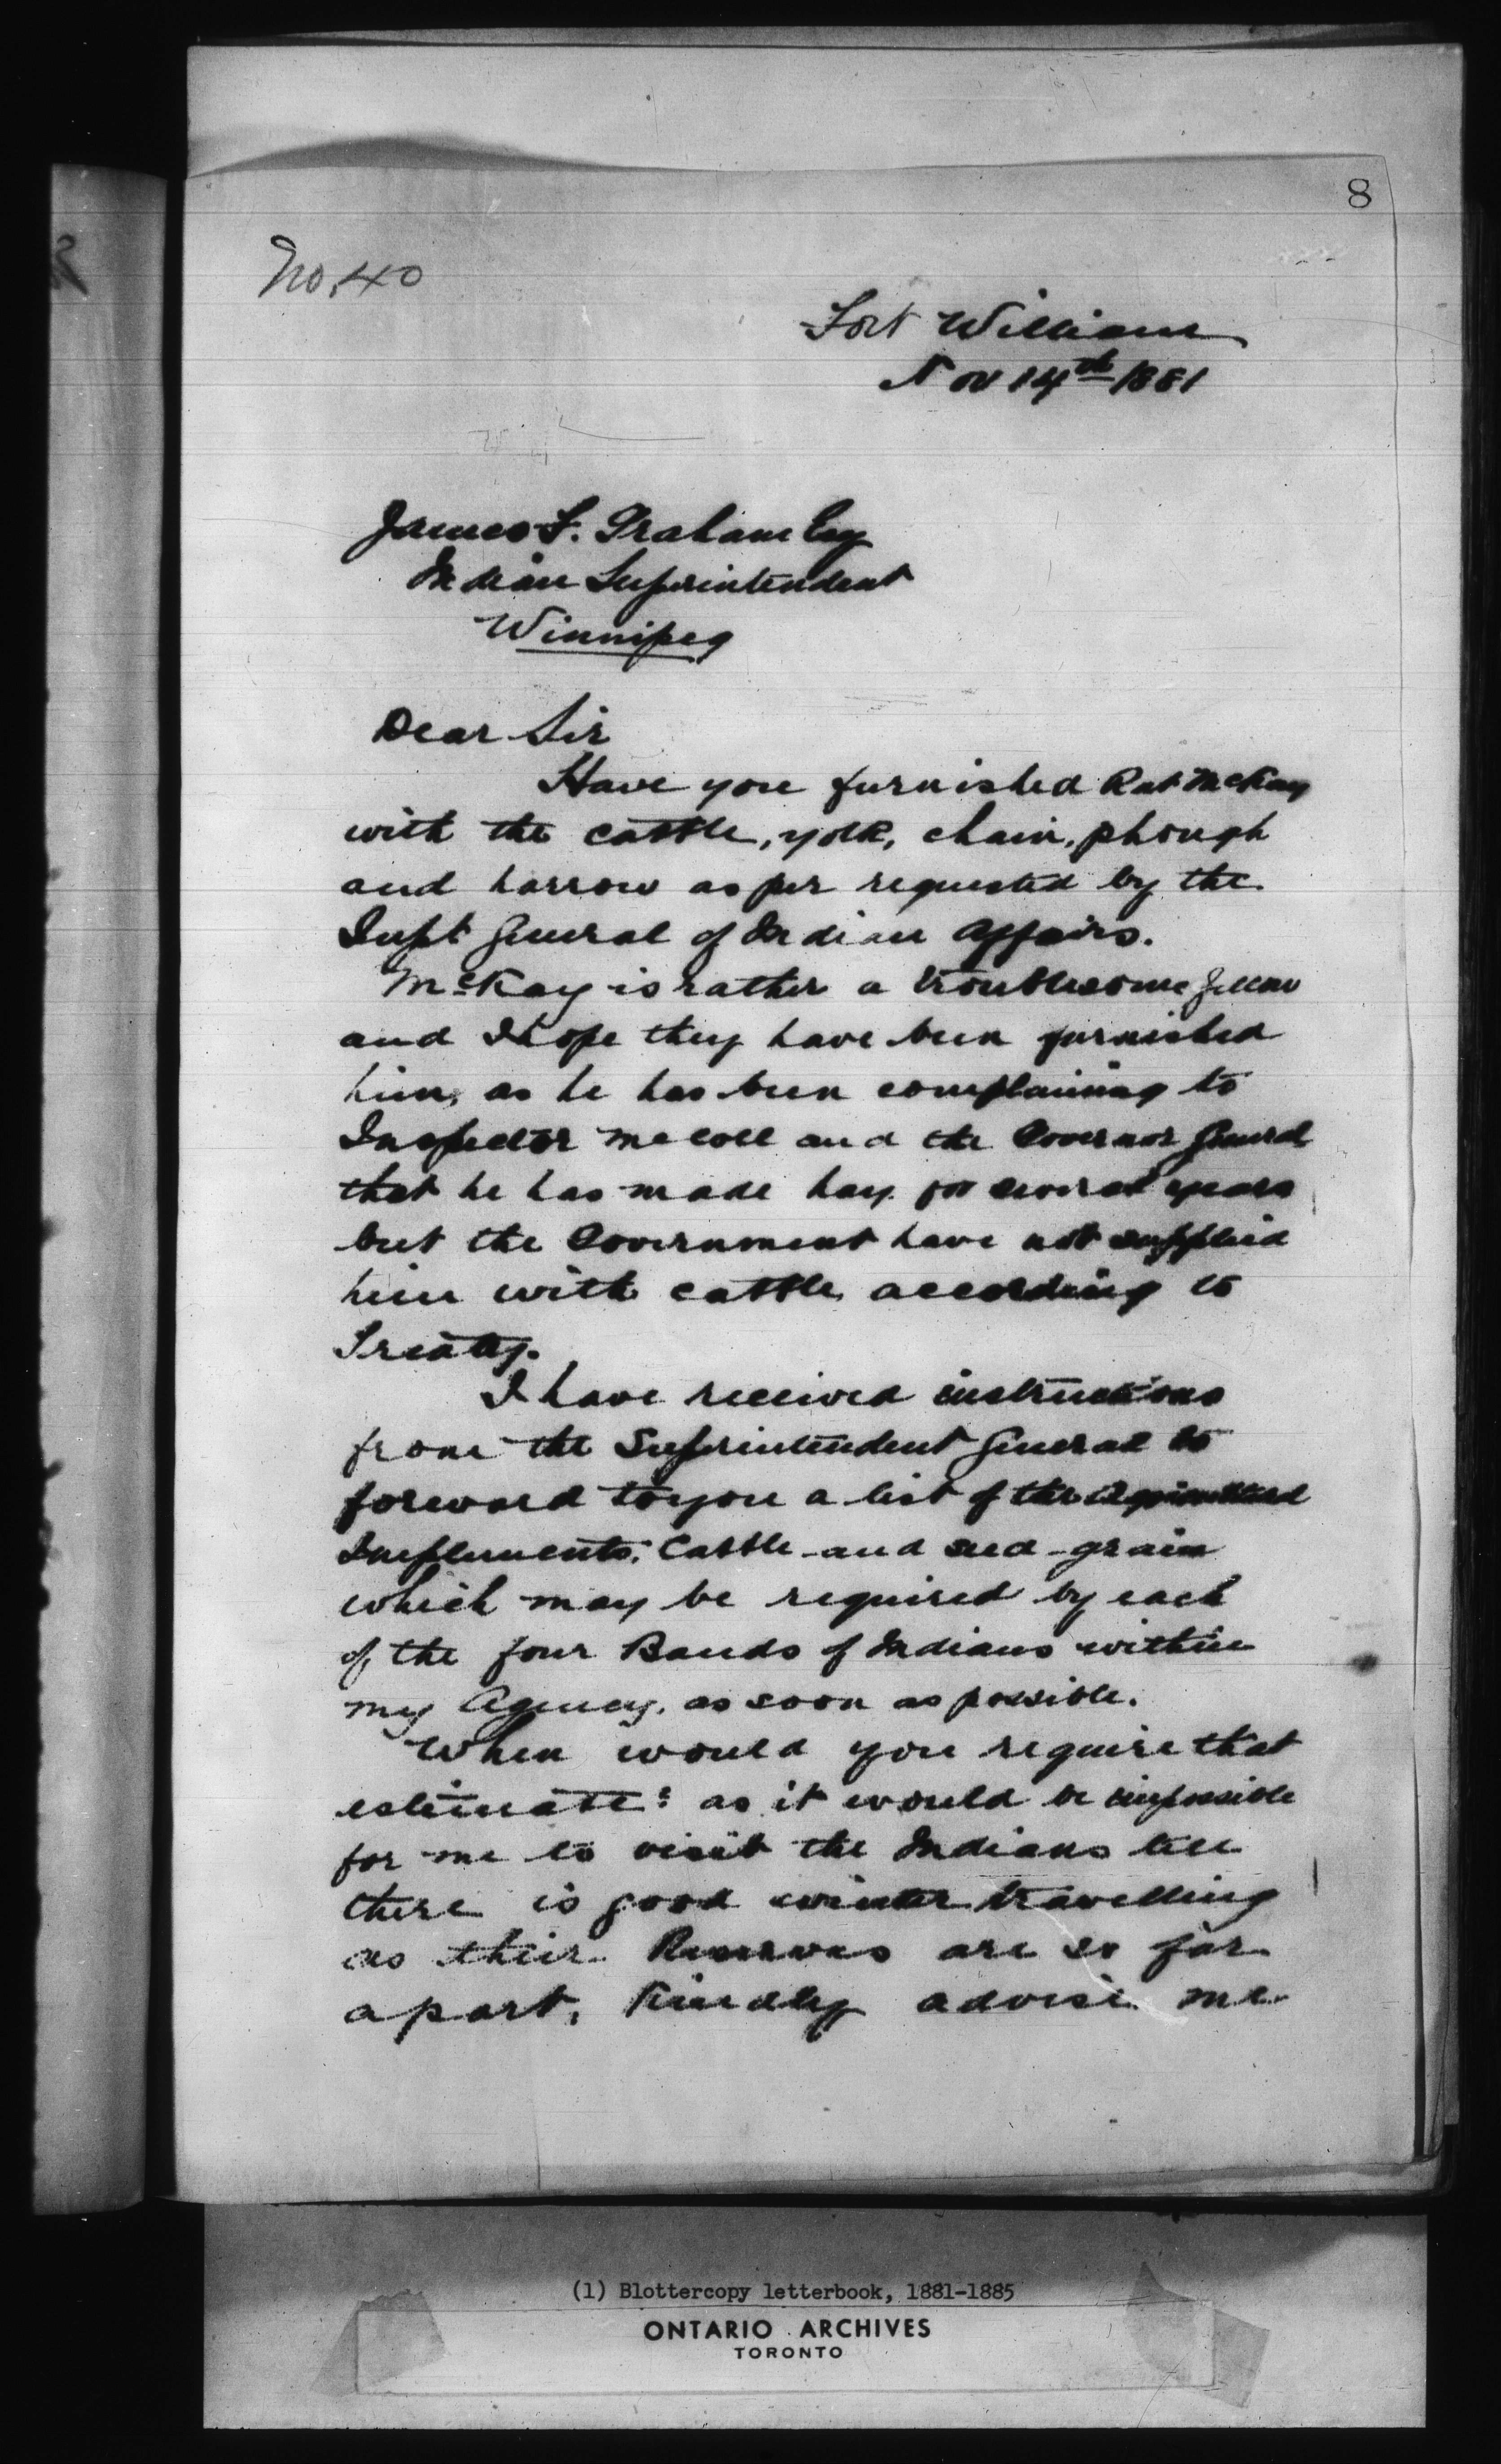 8
No. 40
Fort William
Nov 14th 1881
James F. Graham Esq
Indian Superintendent
Winnipeg
Dear Sir
Have you furnished Rat McKay
with the cattle, yolk, chain, plough
and harrow as per requested by the
Supt General of Indian Affairs.
McKay is rather a troublesome fellow
and I hope they have been furnished
him, as he has been complaining to
Inspector McColl and the Governor General
that he has made hay for several years
but the Government have not supplied
him with cattle according to
Treaty.
I have received instructions
from the Superintendent General to
forward to you a list of the Agricultural
Implements, Cattle and seed-grain
which may be required by each
of the four Bands of Indians within
my Agency, as soon as possible.
When would you require that
estimate: as it would be impossible
for me to visit the Indians till
there is good winter travelling
as their Reserves are so far
apart, Kindly advise me
(1) Blottercopy letterbook, 1881-1885
ONTARIO ARCHIVES
TORONTO